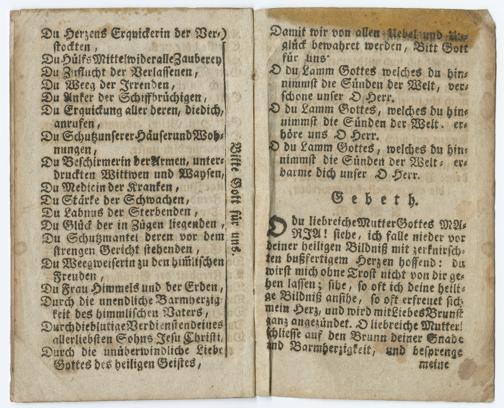 Du Herzens Erquickerin der Ver-
stockten,
Du Hülfs Mittel wider alle Zauberey
Du Zuflucht der Verlassenen,
Du Weeg der Irrenden,
Du Anker der Schiffbrüchigen,
Du Erquickung aller deren, die dich,
anrufen,
Du Schutz unserer Häuser und Woh-
nungen,
Du Beschirmerin der Armen, unter-
druckten Wittwen und Waysen,
Du Medicin der Kranken,
Du Stärke der Schwachen,
Du Labnus der Sterbenden,
Du Glück der in Zügen liegenden,
Du Schutzmantel deren vor dem
strengen Gericht stehenden,
Du Weegweiserin zu den himlischen
Freuden,
Du Frau Himmels und der Erden,
Durch die unendliche Barmherzig
keit des himmlischen Vaters,
Durch die blutige Verdiensten deines
allerliebsten Sohns Jesu Christi,
Durch die unüberwindliche Liebe
Gottes des heiligen Geistes,
Bitte Gott für uns.
Damit wir von allen Uebel und Un-
glück bewahret werden, Bitt Gott
für uns
O du Lamm Gottes welches du hin-
nimmst die Sünden der Welt, ver-
schone unser O Herr.
O du Lamm Gottes, welches du hin-
nimmst die Sünden der Welt, er-
höre uns O Herr.
O du Lamm Gottes, welches du hin-
nimmst die Sünden der Welt, er-
barme dich unser O Herr.
Gebeth.
O du liebreiche Mutter Gottes MA-
RIA! siehe, ich falle nieder vor
deiner heiligen Bildniß mit zerknirsch-
ten bußfertigem Herzen hoffend: du
wirst mich ohne Trost nicht von dir ge-
hen lassen; sihe, so oft ich deine heili-
ge Bildniß ansihe, so oft erfreuet sich
mein Herz, und wird mit Liebes Brunst
ganz angezündet. O liebreiche Mutter!
schliesse auf den Brunn deiner Gnade
und Barmherzigkeit, und besprenge
meine